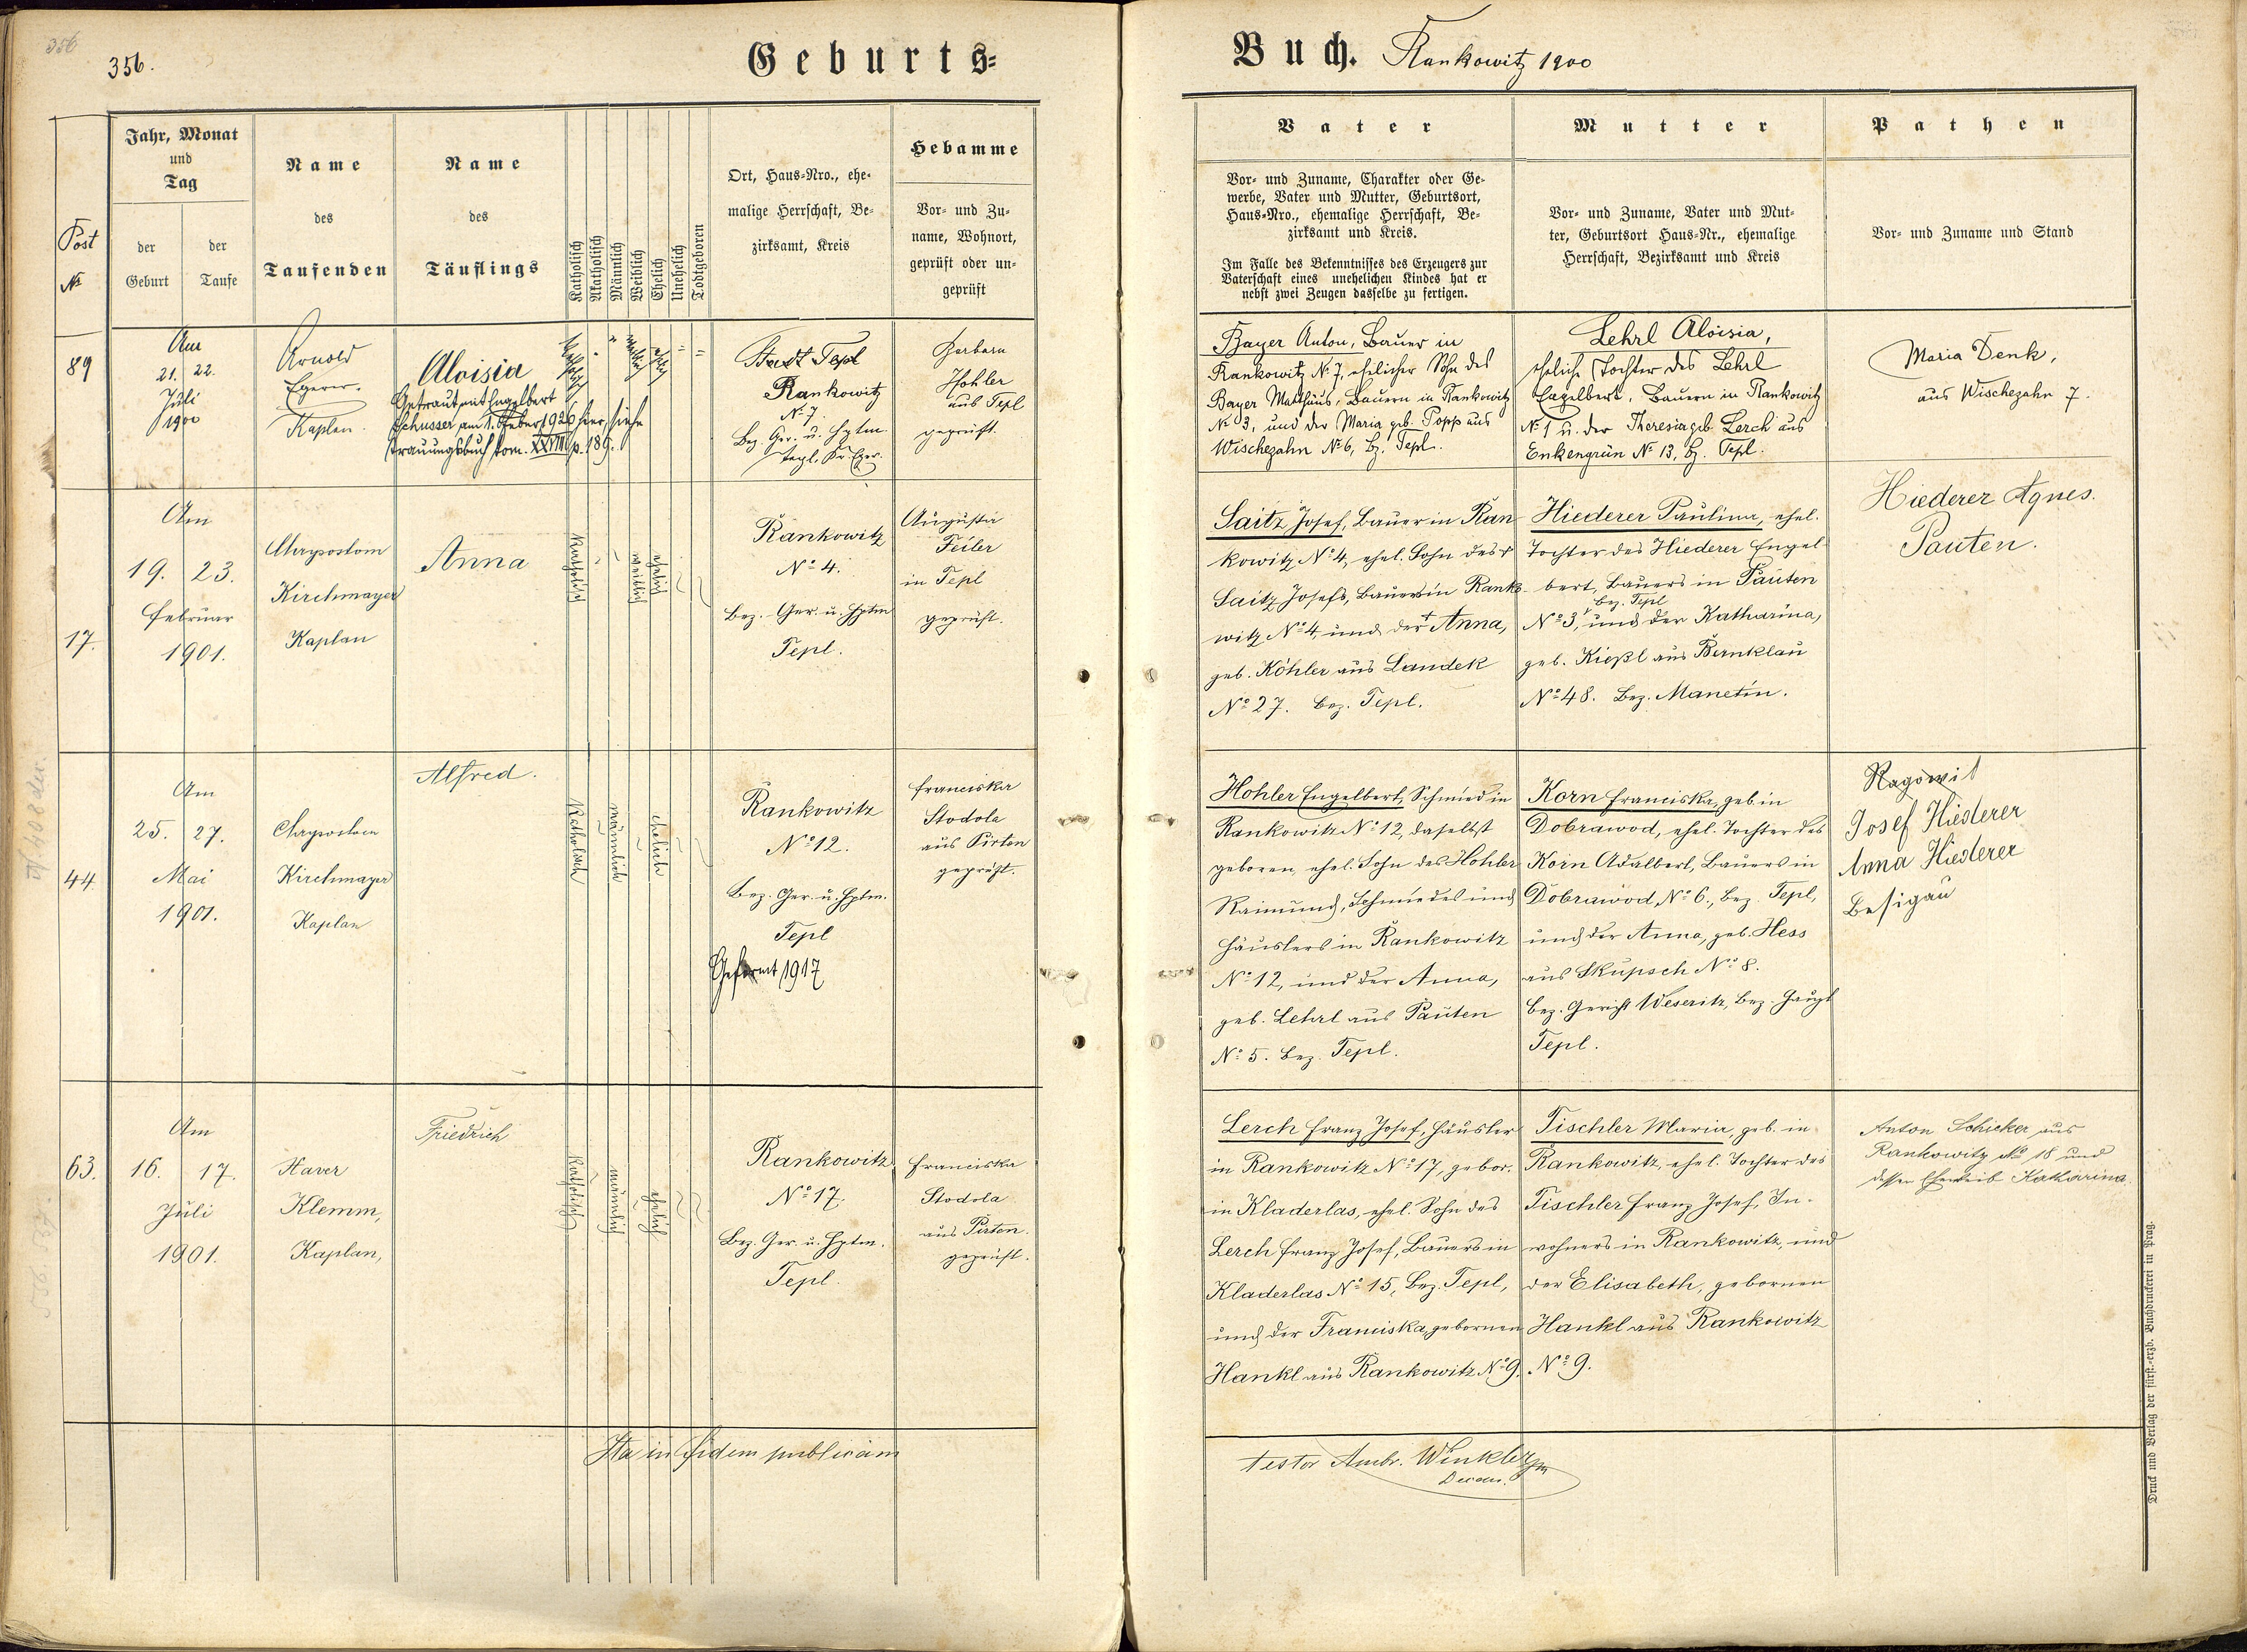 356
356.
Geburts=
Buch. Rankowitz 1900
Post
№
Jahr, Monat
und
Tag
der
Geburt
der
Taufe
Name
des
Taufenden
Name
des
Täuflings
Katholisch
Akatholisch
Männlich
Weiblich
Ehelich
Unehelich
Todtgeboren
Ort, Haus=Nro., ehe=
malige Herrschaft, Be=
zirksamt, Kreis
Hebamme
Vor= und Zu=
name, Wohnort,
geprüft oder un=
geprüft
Vater
Vor= und Zuname, Charakter oder Ge=
werbe, Vater und Mutter, Geburtsort,
Haus=Nro., ehemalige Herrschaft, Be=
zirksamt und Kreis.
Im Falle des Bekenntnisses des Erzeugers zur
Vaterschaft eines unehelichen Kindes hat er
nebst zwei Zeugen dasselbe zu fertigen.
Mutter
Vor= und Zuname, Vater und Mut=
ter, Geburtsort Haus=Nr., ehemalige
Herrschaft, Bezirksamt und Kreis
Pathen
Vor= und Zuname und Stand
89
Am
21. 22.
Juli
1900
Arnold
Egerer.
Kaplan.
Aloisia
Getraut mit Engelbert
Schusser am 1. Feber 1926 hier, siehe
Trauungsbuch tom. XXVIII p. 189.
Stadt Tepl
Rankowitz
№ 7.
Bez. Ger. u. Hptm.
Tepl. Kr. Eger.
Barbara
Hohler
aus Tepl
geprüft.
Bayer Anton, Bauer in
Rankowitz № 7, ehelicher Sohn des
Bayer Matthäus, Bauern in Rankowitz
№ 3, und der Maria geb. Popp aus
Wischezahn № 6, Bz. Tepl.
Lehrl Aloisia,
eheliche Tochter des Lehrl
Engelbert, Bauern in Rankowitz
№ 1 u. der Theresia geb. Lerch aus
Enkengrün № 13, Bz. Tepl.
Maria Denk,
aus Wischezahn 7.
17.
Am
19. 23.
Februar
1901.
Chrysostom
Kirchmayer
Kaplan
Anna
Katholisch
weiblich
ehelich
Rankowitz
№ 4.
Bez. Ger. u. Hptm
Tepl.
Augusta
Feiler
in Tepl
geprüft.
Saitz Josef, Bauer in Ran
kowitz № 4, ehel. Sohn des †
Saitz Josefs, Bauers in Ranko
witz № 4, und der † Anna,
geb. Köhler aus Landek
№ 27. Bez. Tepl.
Hiederer Paulina, ehel.
Tochter des Hiederer Engel
bert, Bauers in Pauten
bez. Tepl
№ 3, und der Katharina,
geb. Kießl aus Bernklau
№ 48. Bez. Manetin.
Hiederer Agnes.
Pauten.
44.
Am
25. 27.
Mai
1901.
Chrysostom
Kirchmayer
Kaplan
Alfred.
Katholisch
männlich
ehelich
Rankowitz
№ 12.
Bez. Ger. u. Hptm.
Tepl
Gefirmt 1917
Franciska
Stodola
aus Pirten
geprüft.
Hohler Engelbert, Schmied in
Rankowitz № 12, daselbst
geboren, ehel. Sohn des Hohler
Raimund, Schmiedes und
Häuslers in Rankowitz
№ 12, und der Anna,
geb. Lehrl aus Pauten
№ 5. Bez. Tepl.
Korn Franciska, geb. in
Dobrawod, ehel. Tochter des
Korn Adalbert, Bauers in
Dobrawod, № 6., Bez. Tepl,
und der Anna, geb. Hess
aus Skupsch № 8.
Bez. Gericht Weseritz, Bez. Haupt
Tepl.
Josef Hiederer
Anna Hiederer
Besigau
63.
Am
16. 17.
Juli
1901.
Xaver
Klemm,
Kaplan,
Friedrich
Katholisch
männlich
ehelich
Rankowitz
№ 17.
Bez. Ger. u. Hptm.
Tepl.
Franciska
Stodola
aus Pirten.
geprüft.
Lerch Franz Josef, Häusler
in Rankowitz № 17, gebor.
in Kladerlas, ehel. Sohn des
Lerch Franz Josef, Bauers in
Kladerlas № 15, Bez. Tepl,
und der Franciska, gebornen
Hankl aus Rankowitz № 9.
Tischler Maria, geb. in
Rankowitz, ehel. Tochter des
Tischler Franz Josef, In-
wohners in Rankowitz, und
der Elisabeth, gebornen
Hankl aus Rankowitz
№ 9.
Anton Schicker aus
Rankowitz № 18 und
dessen Eheweib Katharina.
Ita in fidem publicam
testor Ambr. Winkler
Decan.
Druck und Verlag der fürst.=erzb. Buchdruckerei in Prag.